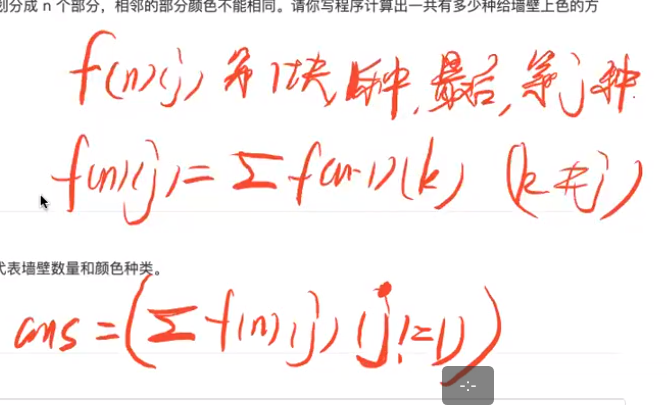 划分成 n 个部分，相邻的部分颜色不能相同。请你写程序计算出一共有多少种给墙壁上色的方
f(n)(j) 第1块 种,最后,第j种.
f(n)(j)=Σf(n-1)(k) (k≠j)
代表墙壁数量和颜色种类。
ans=(Σf(n)(j)(j!=1))